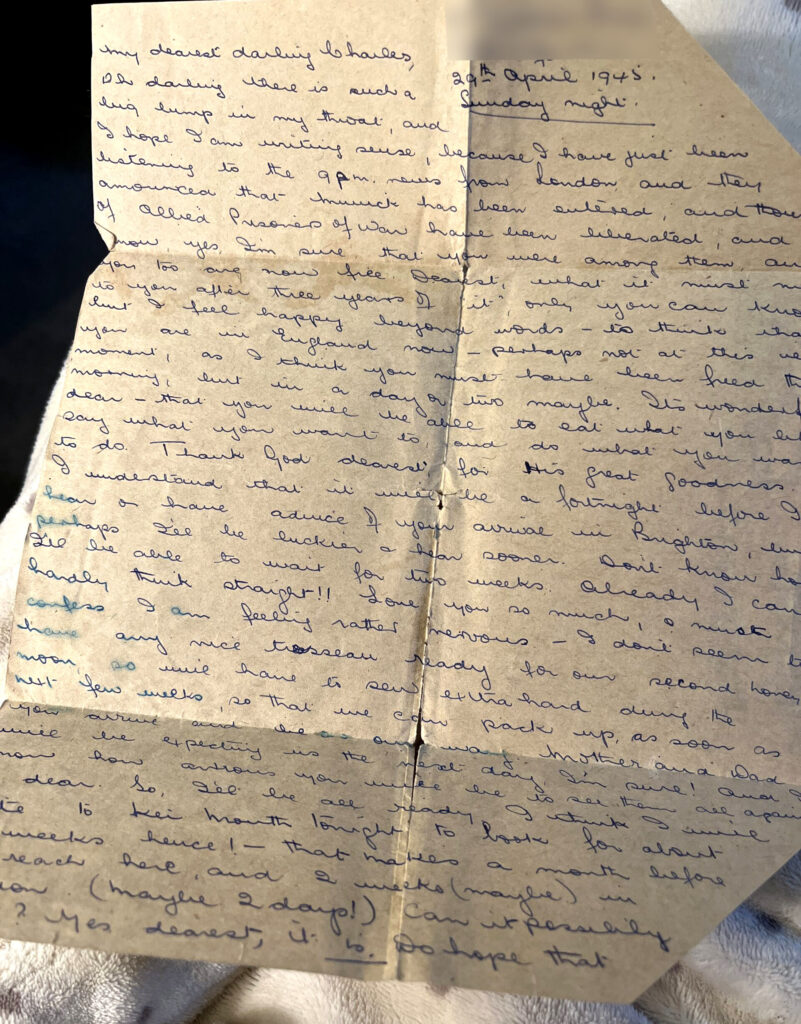 29th April 1945.
Sunday night.
My dearest darling Charles,
Oh darling there is such a
big lump in my throat, and
I hope I am writing sense, because I have just been
listening to the 9pm. news from London and they
announced that Munick has been entered, and thou
of Allied Prisoners of War have been liberated, and
now, yes, I'm sure, that you were among them, an
you too are now free. Dearest, what it must m
to you after three years of it, only you can kno
but I feel happy beyond words – to think tha
you are in England now – perhaps not at this ve
moment, as I think you must have been freed th
morning, but in a day or two maybe. Its wonderf
dear – that you will be able to eat what you lik
say what you want to, and do what you wa
to do. Thank God dearest for His great goodness.
I understand that it will be a fortnight before I
hear or have advice of your arrival in Brighton, but
perhaps I'll be luckier & hear sooner. Don't know ho
I'll be able to wait for two weeks. Already I can
hardly think straight!! Love you so much, & must
confess I am feeling rather nervous – I don't seem t
have any nice trosseau ready for our second honey
moon, so will have to sew extra hard during the
next few weeks, so that we can pack up, as soon as
you arrive and be on our way. Mother and Dad
will be expecting us the next day I'm sure! And I
now how anxious you will be to see them all again
dear. So, I'll be all ready. I think I will
te to Kei Mouth tonight to book for about
weeks hence! – that makes a month before
reach here, and 2 weeks (maybe) in
on (maybe 2 days!) Can it possibly
? Yes dearest, it is. Do hope that